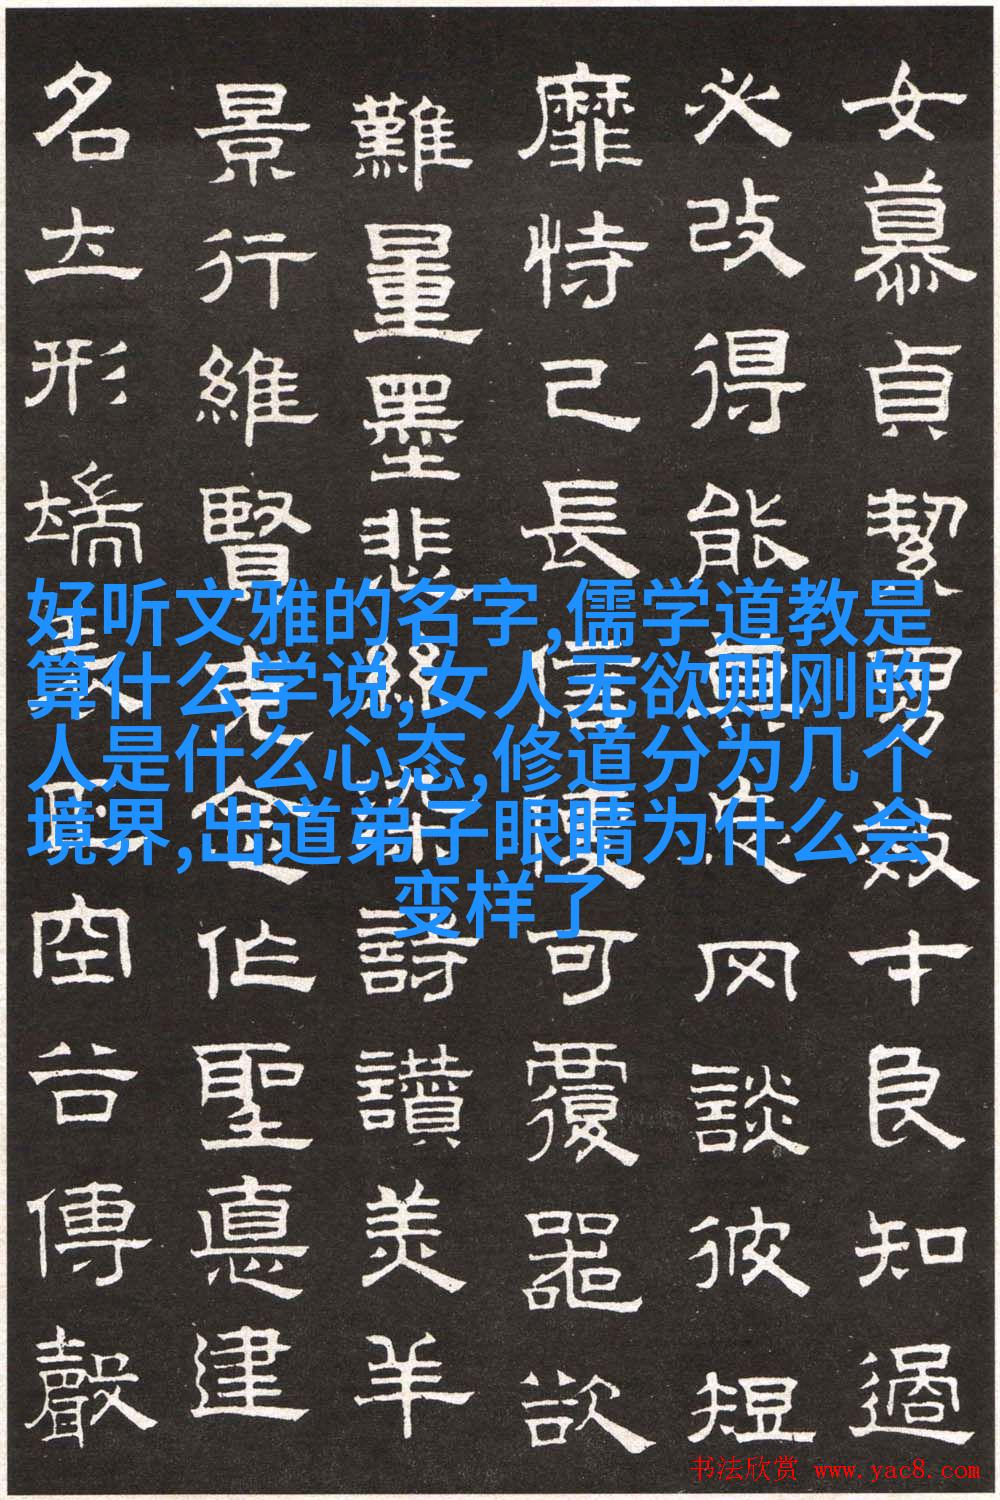 女慕貞絜男效才良知過
必改得能莫忘罔談彼短
靡恃己長信使可覆器欲
難量墨悲絲染詩讚羔羊
景行維賢克念作聖悳建
名立形端表正空谷傳聲
好听文雅的名字,儒学道教是
算什么学说,女人无欲则刚的
人是什么心态,修道分为几个
境界,出道弟子眼睛为什么会
变样了
书法欣赏 www.yac8.com